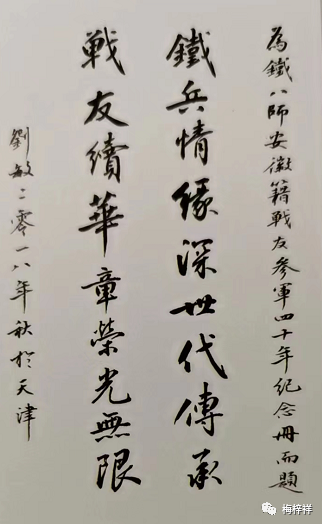 為鐵八師安徽籍戰友參軍四十年纪念冊而題
鐵兵情緣深世代傳承
戰友續華章榮光無限
劉敏二零一八年秋於天津
梅梓祥